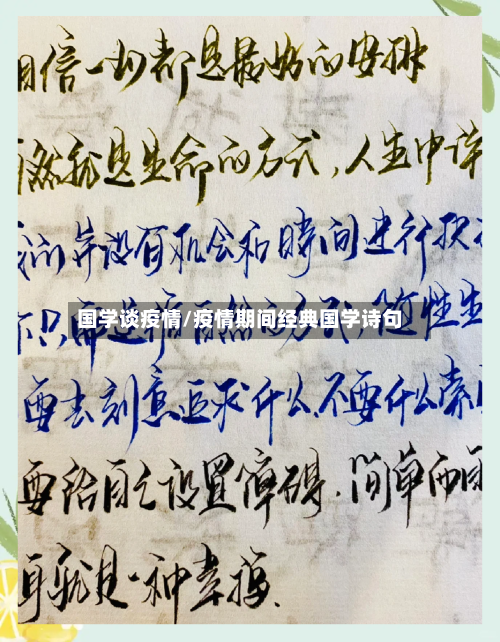 相信一切都是最好的安排
自然就是生命的方式，人生中许
我们并没有机会和时间进行抉
国学谈疫情/疫情期间经典国学诗句
随性生
要去刻意追求什么，不要什么索
要给自己设置障碍．简单而自
身就是一种幸福．